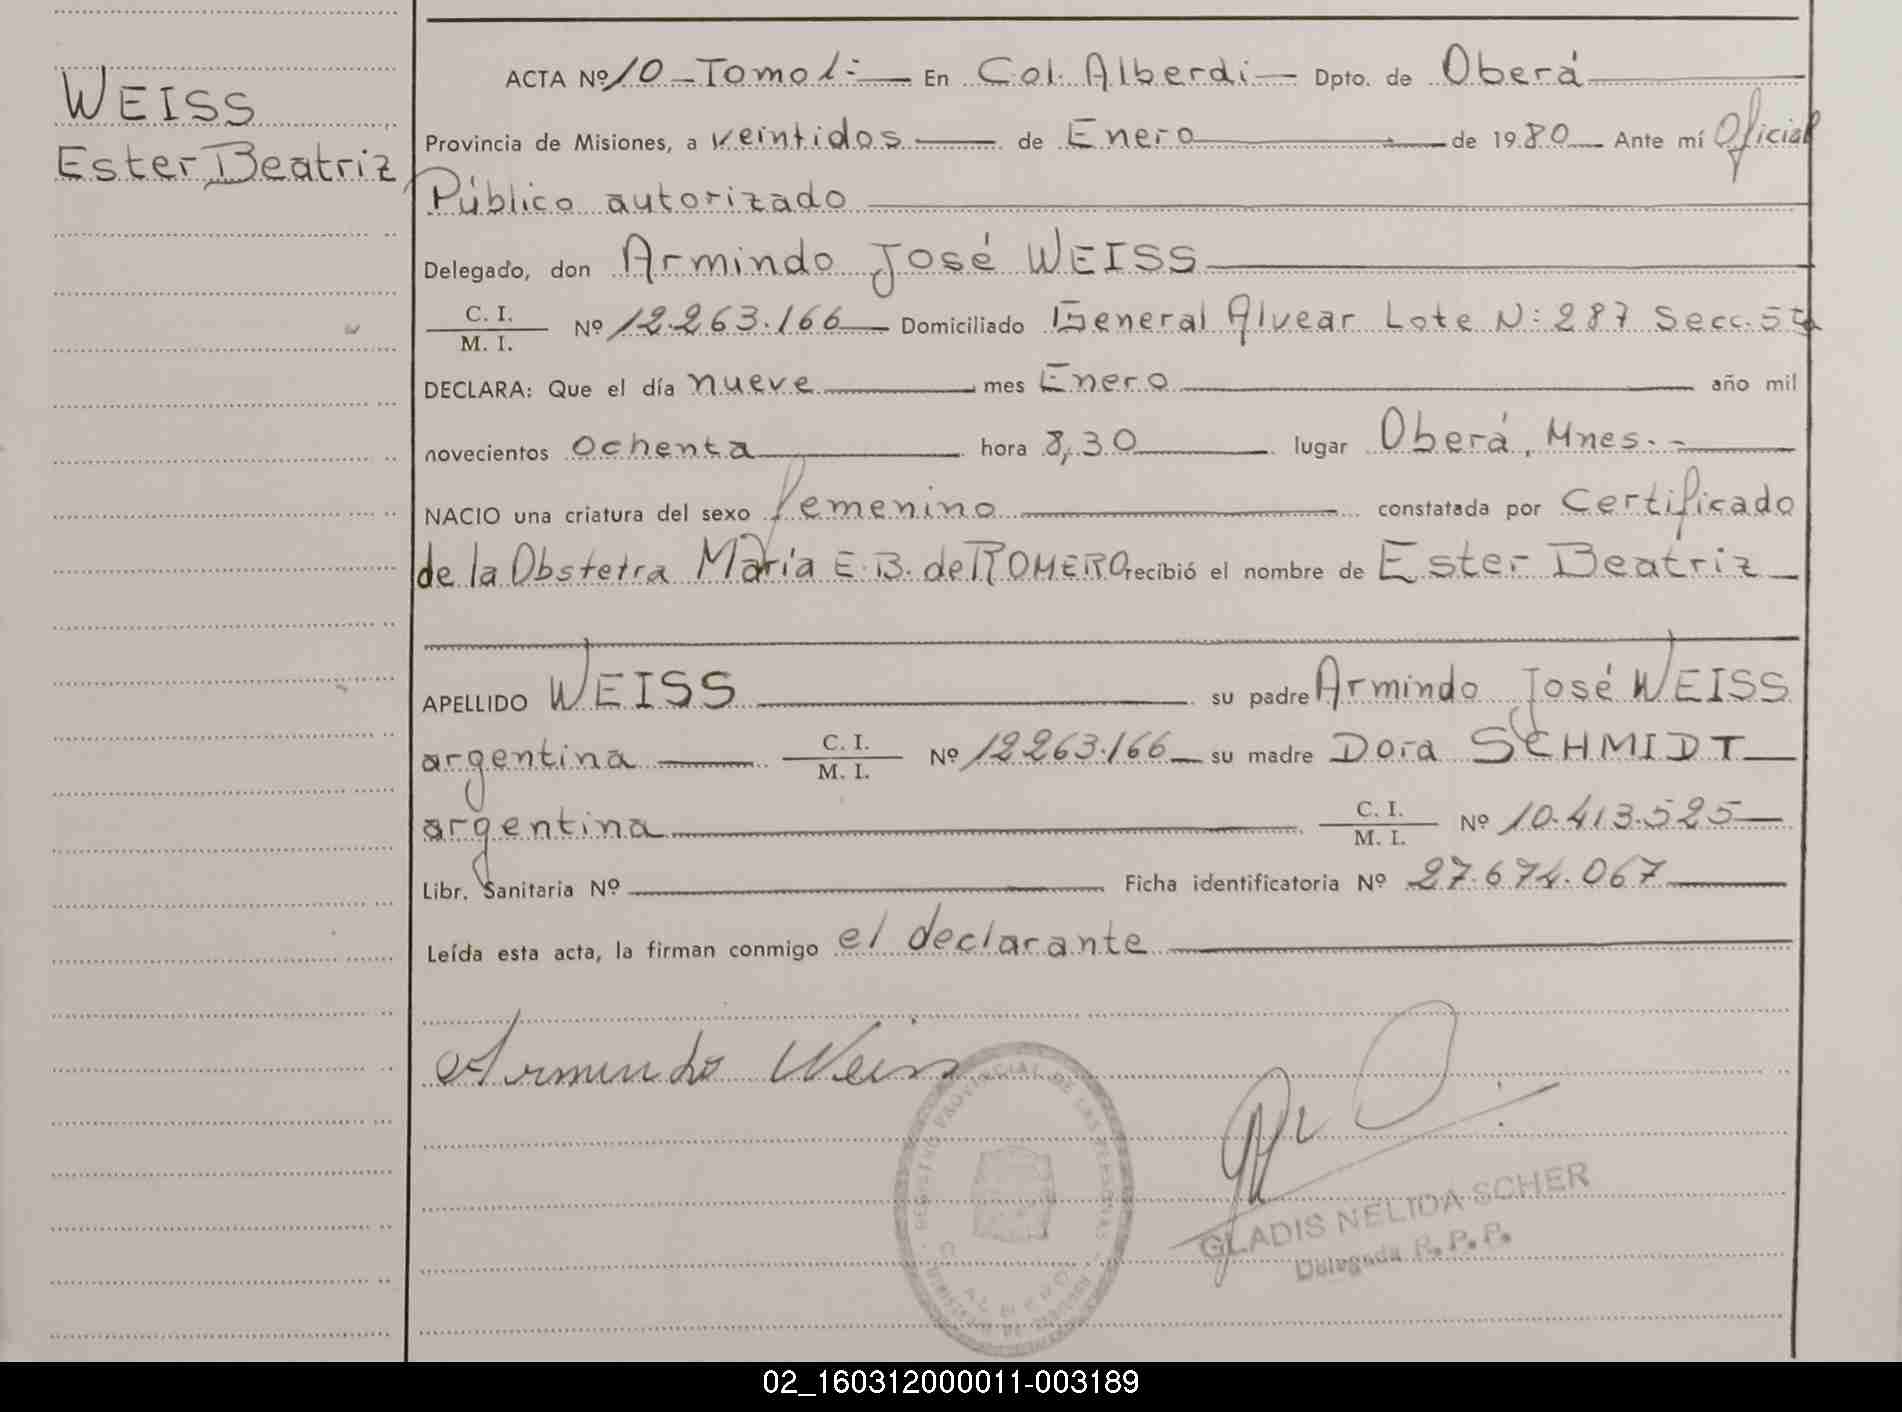 WEISS
Ester Beatriz
ACTA Nº 10 - Tomo I:- En Col. Alberdi Dpto. de Oberá
Provincia de Misiones, a veintidos de Enero de 1980 Ante mí Oficial
Público autorizado
Delegado, don Armindo José WEISS
C. I. / M. I. Nº 12.263.166 Domiciliado General Alvear Lote N: 287 Secc. 5ta
DECLARA: Que el día nueve mes Enero año mil
novecientos ochenta hora 8,30 lugar Oberá, Mnes.-
NACIO una criatura del sexo femenino constatada por Certificado
de la Obstetra María E. B. de ROMERO recibió el nombre de Ester Beatriz
APELLIDO WEISS su padre Armindo José WEISS
argentina C. I. / M. I. Nº 12263.166 su madre Dora SCHMIDT
argentina C. I. / M. I. Nº 10.413.525
Libr. Sanitaria Nº Ficha identificatoria Nº 27.674.067
Leída esta acta, la firman conmigo el declarante
Armindo Weiss
REGISTRO PROVINCIAL DE LAS PERSONAS
GLADIS NELIDA SCHER
Delegada R. P. P.
02_160312000011-003189